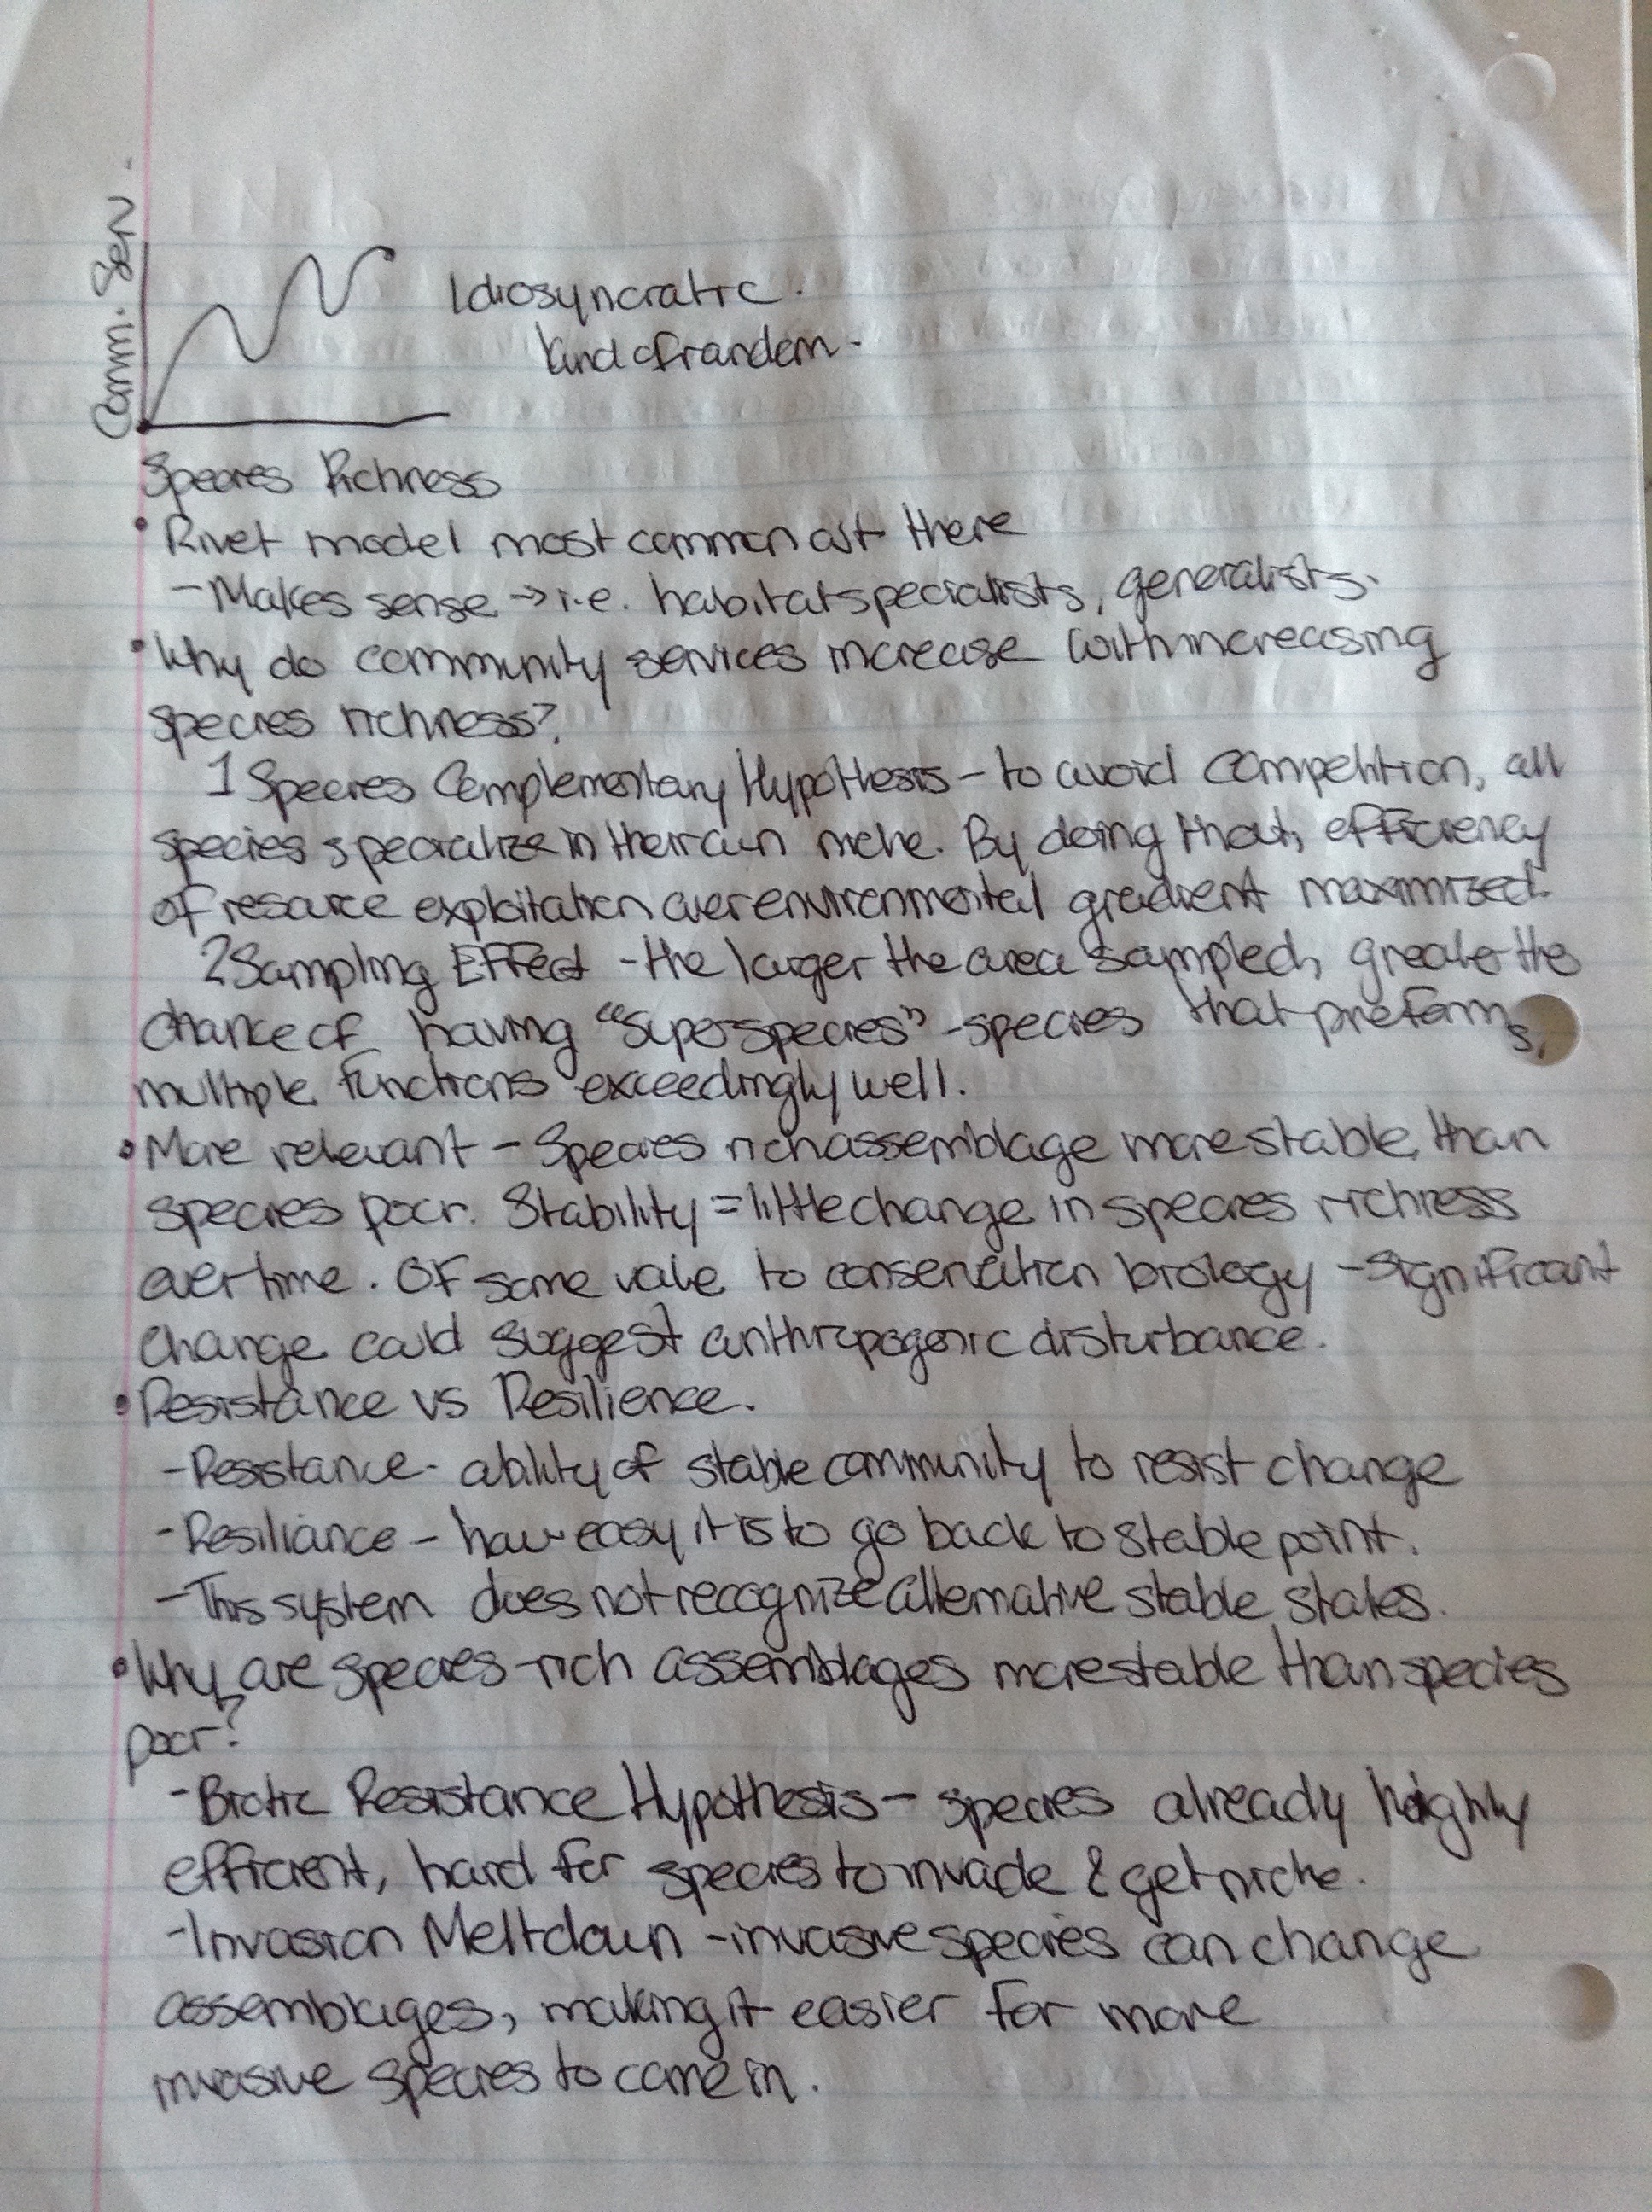 Comm. Serv.
Idiosyncratic.
kind of random.
Species Richness
• Rivet model most common out there
- Makes sense → i.e. habitat specialists, generalists.
• Why do community services increase with increasing
species richness?
1 Species Complementary Hypothesis - to avoid competition, all
species specialize in their own niche. By doing that, efficiency
of resource exploitation over environmental gradient maximized.
2 Sampling Effect - the larger the area sampled, greater the
chance of having "superspecies" - species that preforms
multiple functions exceedingly well.
• More relevant - Species rich assemblage more stable than
species poor. Stability = little change in species richness
over time. Of some value to conservation biology - significant
change could suggest anthropogenic disturbance.
• Resistance vs Resilience.
- Resistance - ability of stable community to resist change
- Resiliance - how easy it is to go back to stable point.
- This system does not recognize alternative stable states.
• Why are species-rich assemblages more stable than species
poor?
- Biotic Resistance Hypothesis - species already highly
efficient, hard for species to invade & get niche.
- Invasion Meltdown - invasive species can change
assemblages, making it easier for more
invasive species to come in.